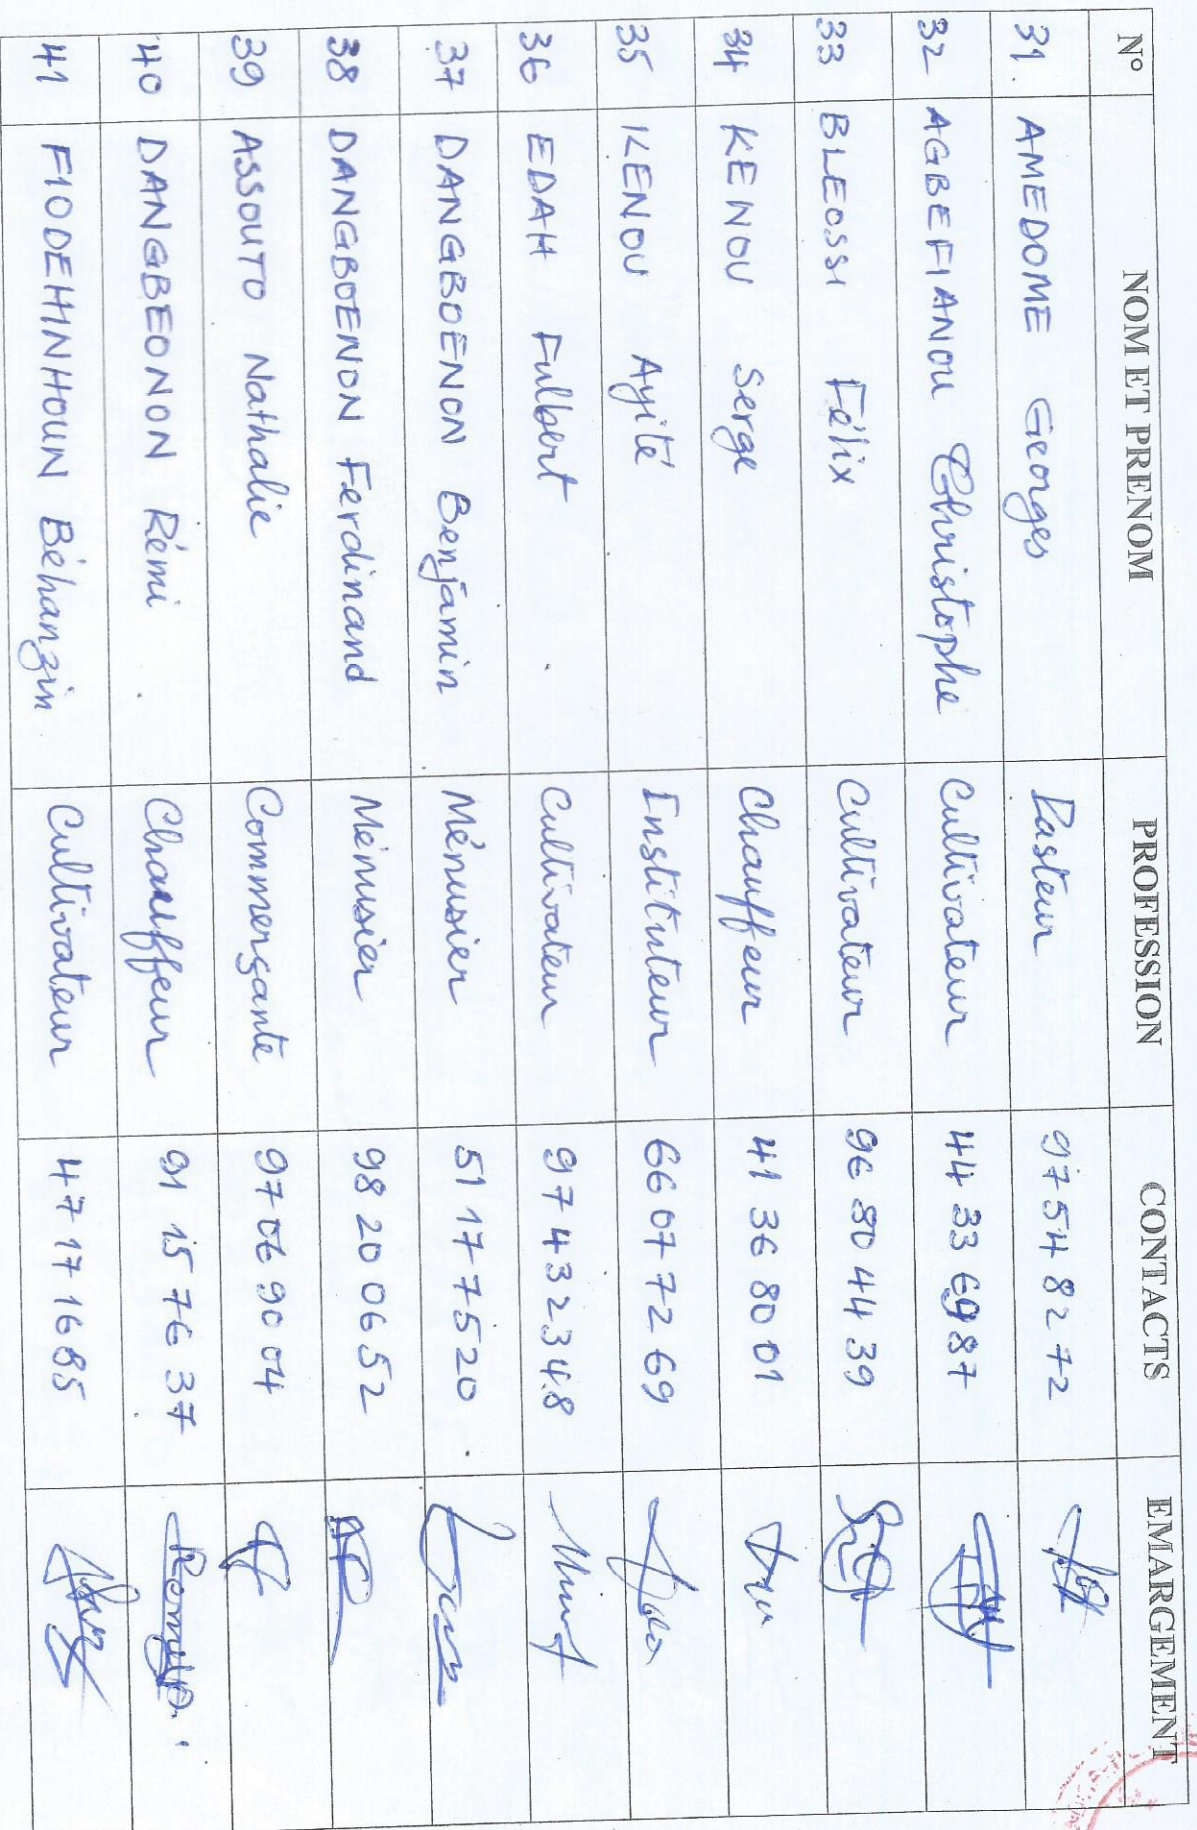 N° NOM ET PRENOM PROFESSION CONTACTS EMARGEMENT
31. AMEDOME Georges Pasteur 97 54 82 72
32 AGBEFIANOU Christophe Cultivateur 44 33 69 87
33 BLEOSSI Félix Cultivateur 96 80 44 39
34 KENOU Serge Chauffeur 41 36 80 01
35 KENOU Ayité Instituteur 66 07 72 69
36 EDAH Fulbert Cultivateur 97 43 23 48
37 DANGBOENON Benjamin Ménusier 51 17 75 20
38 DANGBOENON Ferdinand Ménusier 98 20 06 52
39 ASSOUTO Nathalie Commerçante 97 06 90 04
40 DANGBEONON Rémi Chauffeur 91 15 76 37
41 FIODEHINHOUN Béhanzin Cultivateur 47 17 16 85